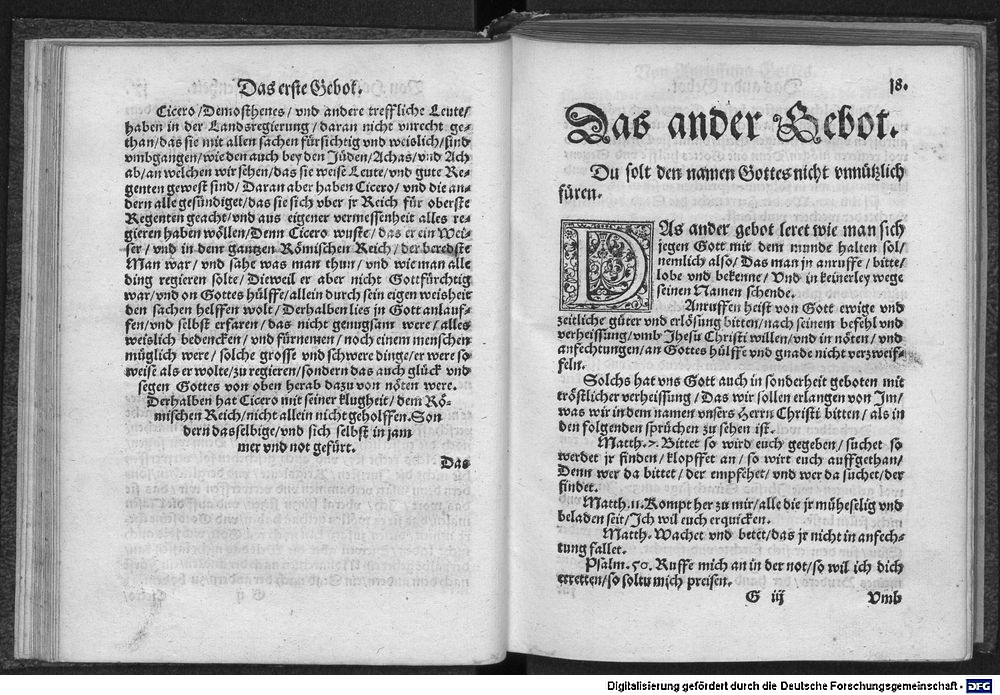 Das erste Gebot.
Cicero/Demosthenes/ vnd andere treffliche Leute/
haben in der Landsregierung/ daran nicht vnrecht ge-
than/das sie mit allen sachen fürsichtig vnd weislich/sind
vmbgangen/wie den auch bey den Jüden/Achas/vnd Ach
ab/an welchen wir sehen/das sie weise Leute/vnd gute Re-
genten gewest sind/ Daran aber haben Cicero/ vnd die an-
dern alle gesündiget/das sie sich vber jr Reich für oberste
Regenten geacht/vnd aus eigener vermessenheit alles re-
gieren haben wöllen/Denn Cicero wuste/ das er ein Wei-
ser/ vnd in dem gantzen Römischen Reich/ der beredste
Man war/ vnd sahe was man thun/ vnd wie man alle
ding regieren solte/ Dieweil er aber nicht Gottfürchtig
war/vnd on Gottes hülffe/allein durch sein eigen weisheit
den sachen helffen wolt/ Derhalben lies jn Gott anlauf-
fen/vnd selbst erfaren/ das nicht genugsam were/alles
weislich bedencken/ vnd fürnemen/ noch einem menschen
müglich were/ solche grosse vnd schwere dinge/er were so
weise als er wolte/zu regieren/sondern das auch glück vnd
segen Gottes von oben herab dazu von nöten were.
Derhalben hat Cicero mit seiner klugheit/ dem Rö-
mischen Reich/nicht allein nicht geholffen. Son
dern dasselbige/vnd sich selbst in jam
mer vnd not gefürt.
Das
18.
Das ander Gebot.
Du solt den namen Gottes nicht vnnützlich
füren.
DAs ander gebot leret wie man sich
jegen Gott mit dem munde halten sol/
nemlich also/ Das man jn anruffe/ bitte/
lobe vnd bekenne/ Vnd in keinerley wege
seinen Namen schende.
Anruffen heist von Gott ewige vnd
zeitliche güter vnd erlösung bitten/nach seinem befehl vnd
verheissung/vmb Jhesu Christi willen/vnd in nöten/ vnd
anfechtungen/an Gottes hülffe vnd gnade nicht verzweif-
feln.
Solchs hat vns Gott auch in sonderheit geboten mit
tröstlicher verheissung/ Das wir sollen erlangen von Jm/
was wir in dem namen vnsers Herrn Christi bitten/ als in
den folgenden sprüchen zu sehen ist.
Matth.7. Bittet so wird euch gegeben/ suchet so
werdet jr finden/ klopffet an/ so wirt euch auffgethan/
Denn wer da bittet/ der empfehet/ vnd wer da suchet/der
findet.
Matth.11. Kompt her zu mir/alle die jr müheselig vnd
beladen seit/Ich wil euch erquicken.
Matth. Wachet vnd betet/das jr nicht in anfech-
tung fallet.
Psalm. 50. Ruffe mich an in der not/so wil ich dich
erretten/so soltu mich preisen.
G iij
Vmb
Digitalisierung gefördert durch die Deutsche Forschungsgemeinschaft - DFG